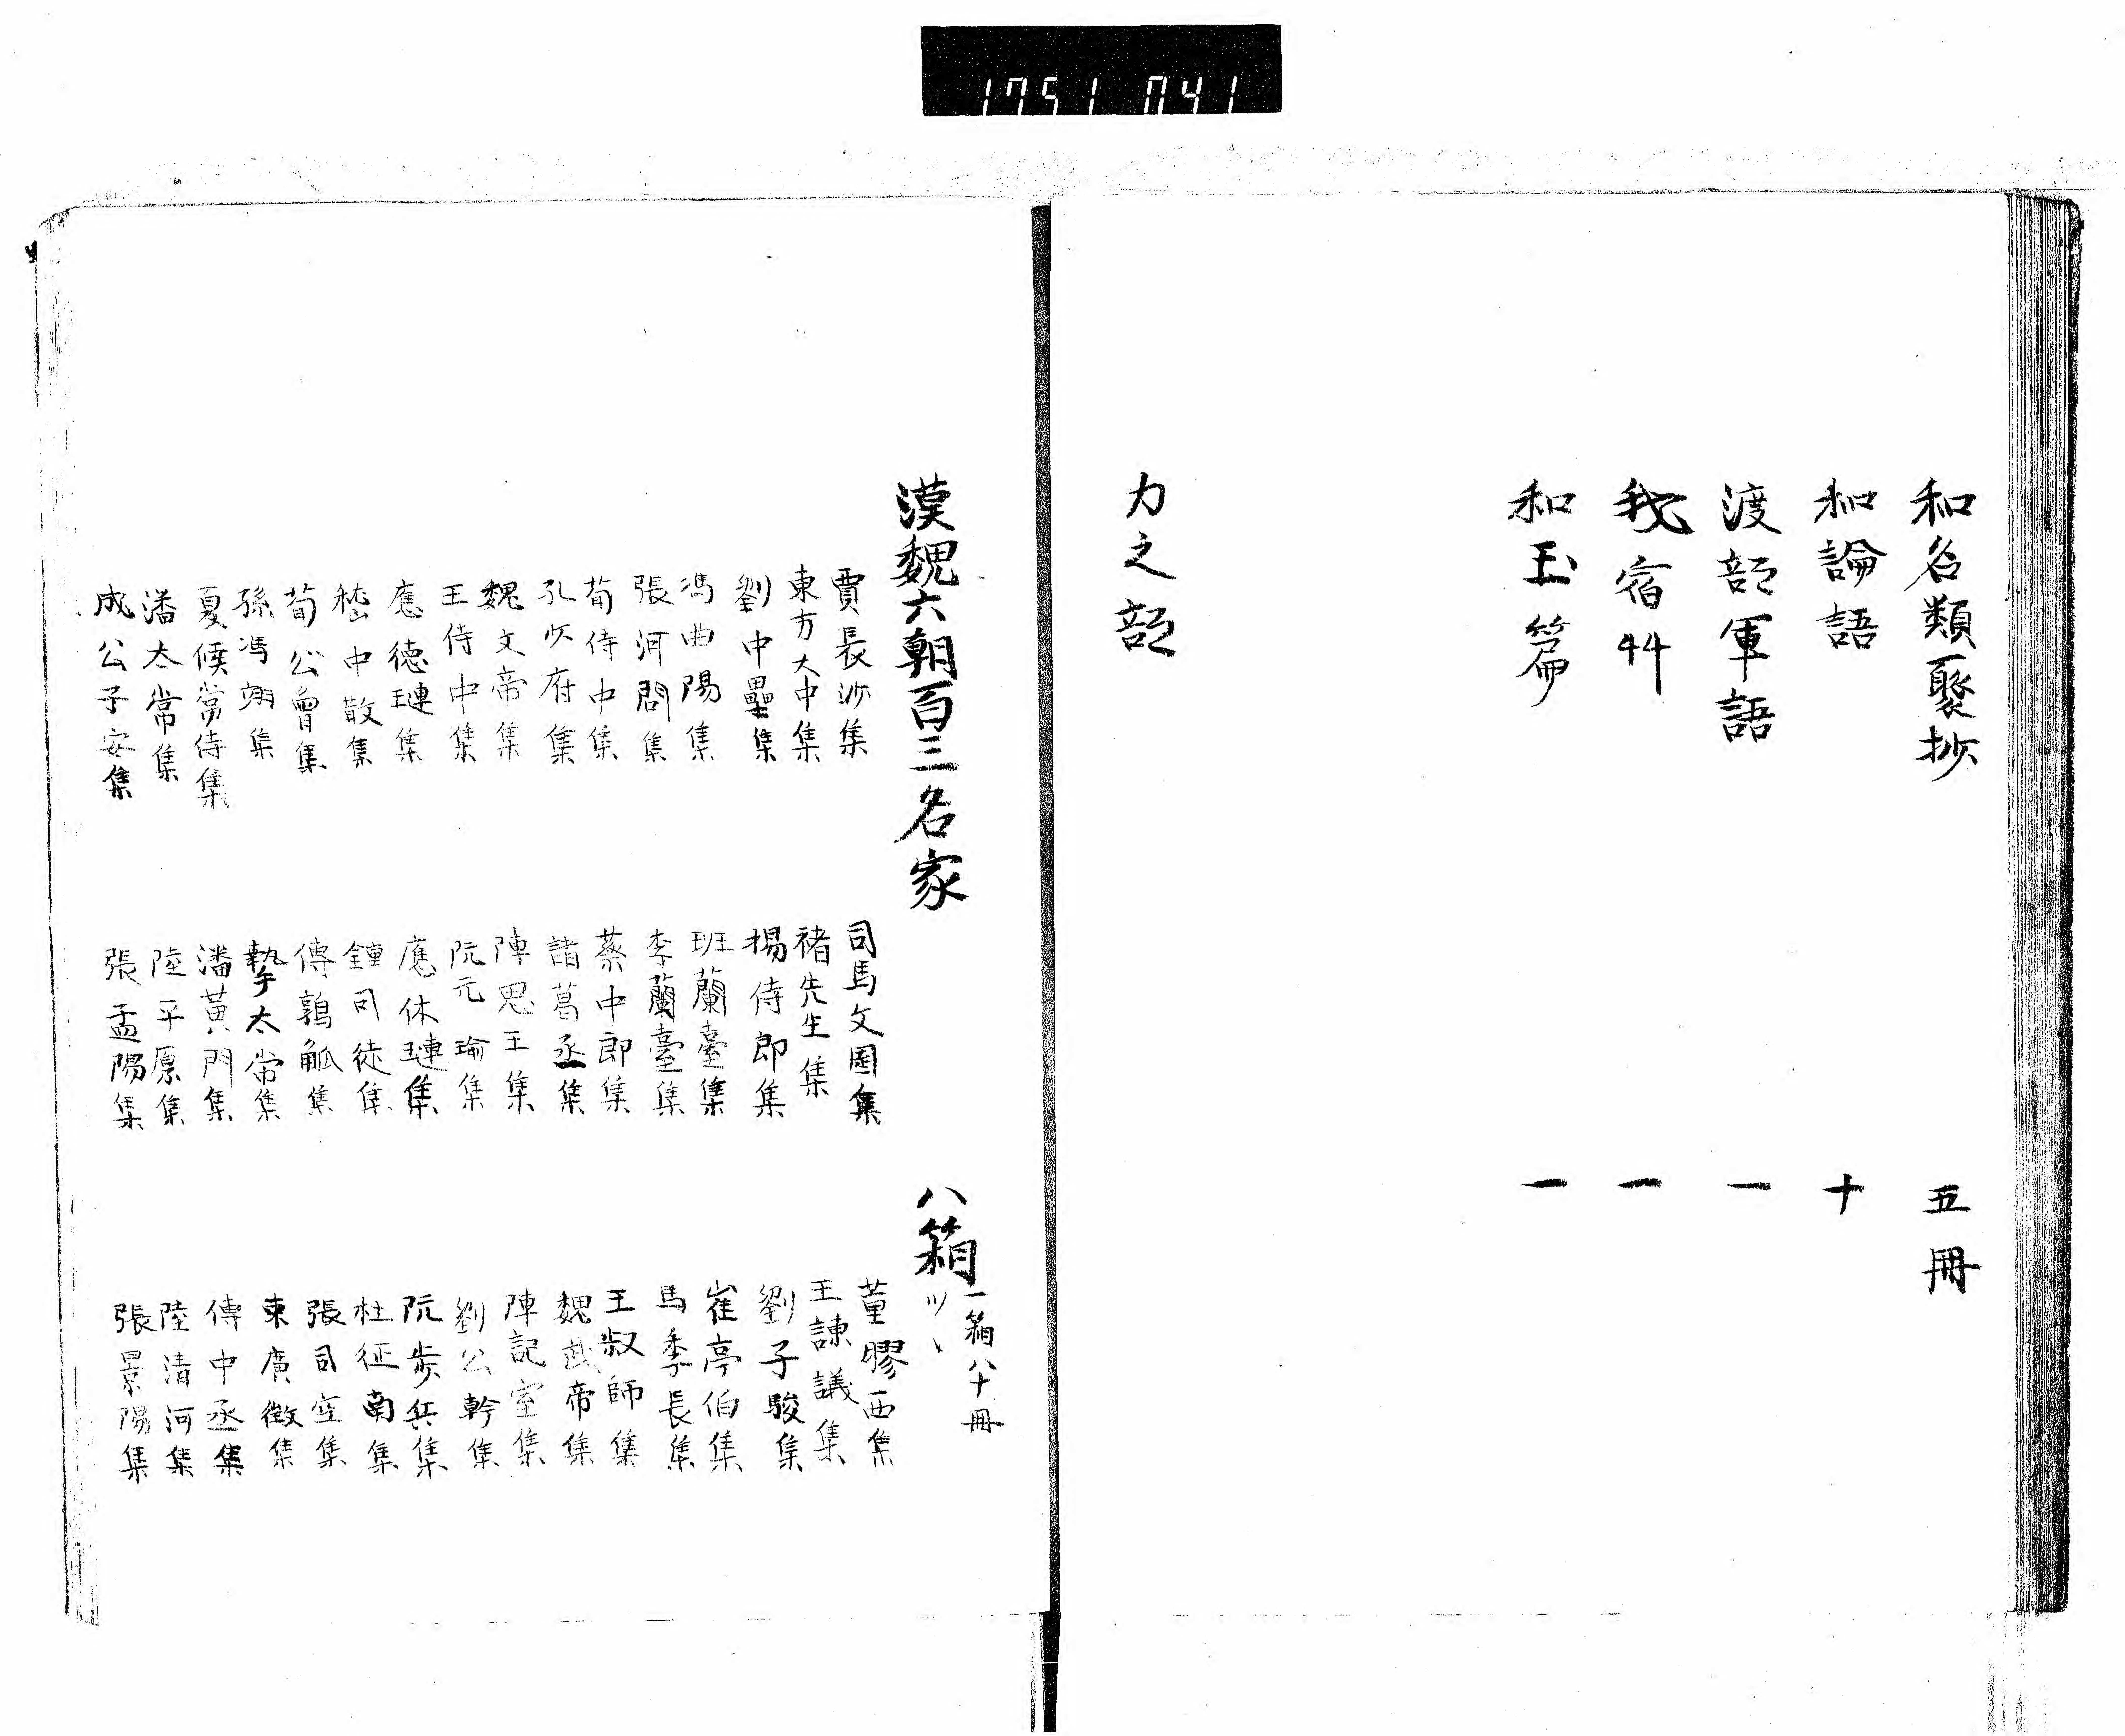 1751 041
和名類聚抄 五冊
和論語 十
渡部軍語 一
我宿艸 一
和玉篇 一
カ之部
漢魏六朝百三名家 八箱 一箱八十冊ツヽ
賈長沙集 司馬文園集 董膠西集
東方大中集 褚先生集 王諫議集
劉中壘集 揚侍郎集 劉子駿集
馮曲陽集 班蘭臺集 崔亭伯集
張河間集 李蘭臺集 馬季長集
荀侍中集 蔡中郎集 王叔師集
孔少府集 諸葛丞集 魏武帝集
魏文帝集 陳思王集 陳記室集
王侍中集 阮元瑜集 劉公幹集
應德璉集 應休璉集 阮歩兵集
嵇中散集 鍾司徒集 杜征南集
荀公曾集 傅鶉觚集 張司空集
孫馮翊集 摯太常集 束廣微集
夏侯常侍集 潘黄門集 傅中丞集
潘太常集 陸平原集 陸清河集
成公子安集 張孟陽集 張景陽集